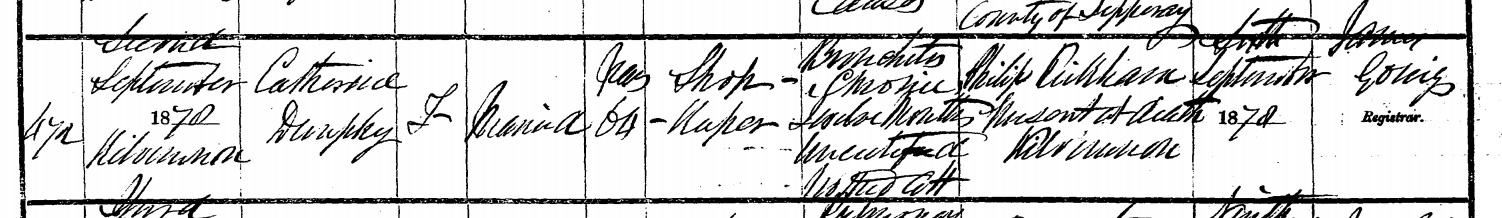 County of Tipperary
472
Second
September
1878
Kilvemnon
Catherine
Dunphy
F
Married
Years
64
Shop-
Keeper
Bronchitis
Chronic
Twelve Months
Uncertified
No Med Att
Philip Kickham
Present at death
Kilvemnon
Sixth
September
1878
James
Going
Registrar.
Third
Ninth